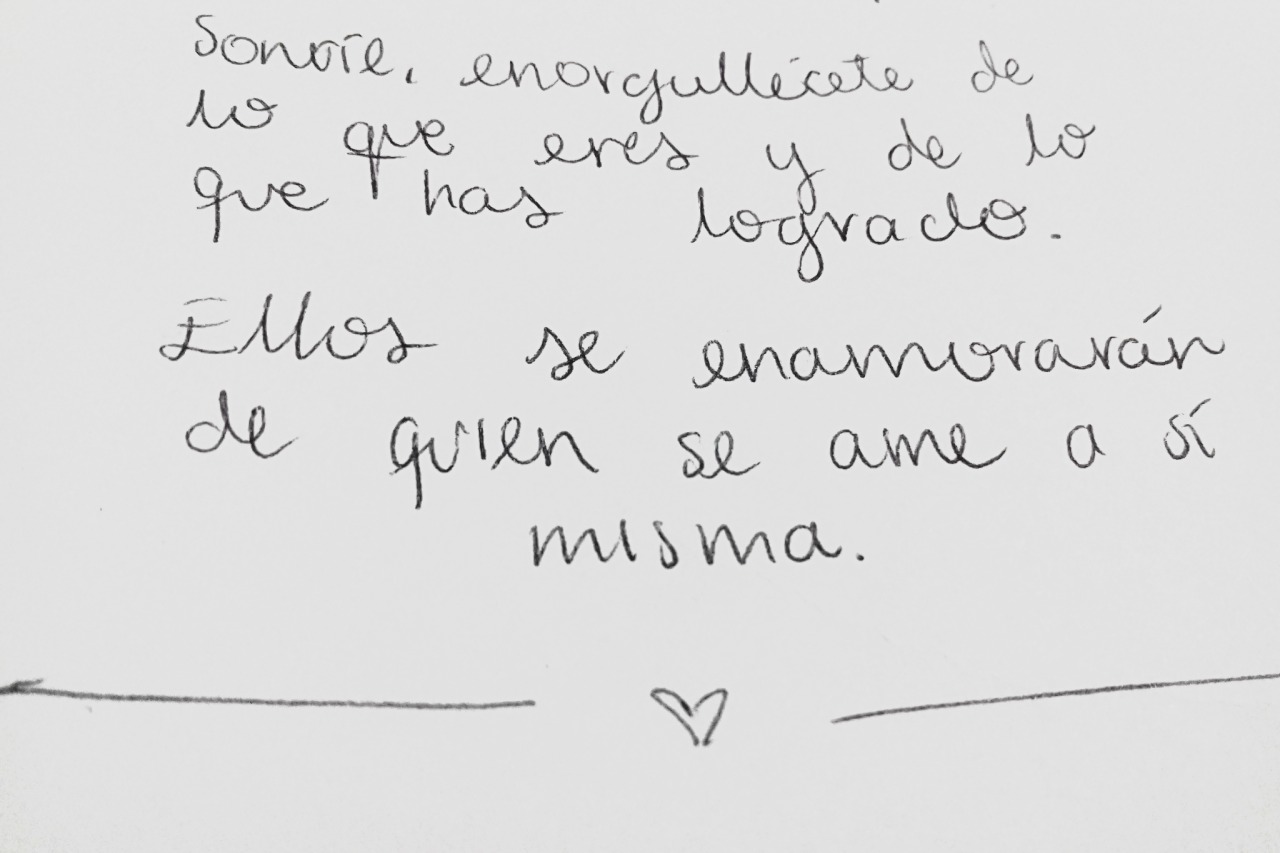 Sonríe, enorgullécete de
lo que eres y de lo
que has logrado.
Ellos se enamorarán
de quien se ame a sí
misma.